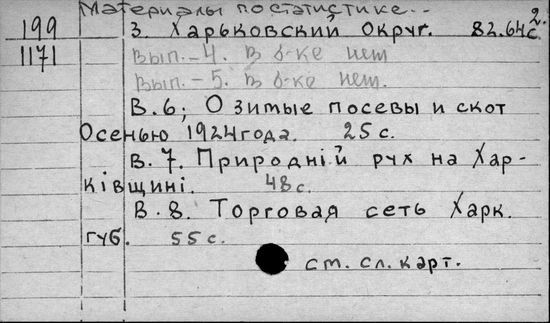 Материалы по статистике..
199 3. Харьковский округ. 82.64с. 2.
1171 Вып.-4. В б-ке нет
Вып.-5. В б-ке нет.
В.6; Озимые посевы и скот
Осенью 1924 года. 25 с.
В.7. Природнiй рух на Хар-
кiвщинi. 48 с.
В.8. Торговая сеть Харк.
губ. 55 с.
см. сл. карт.